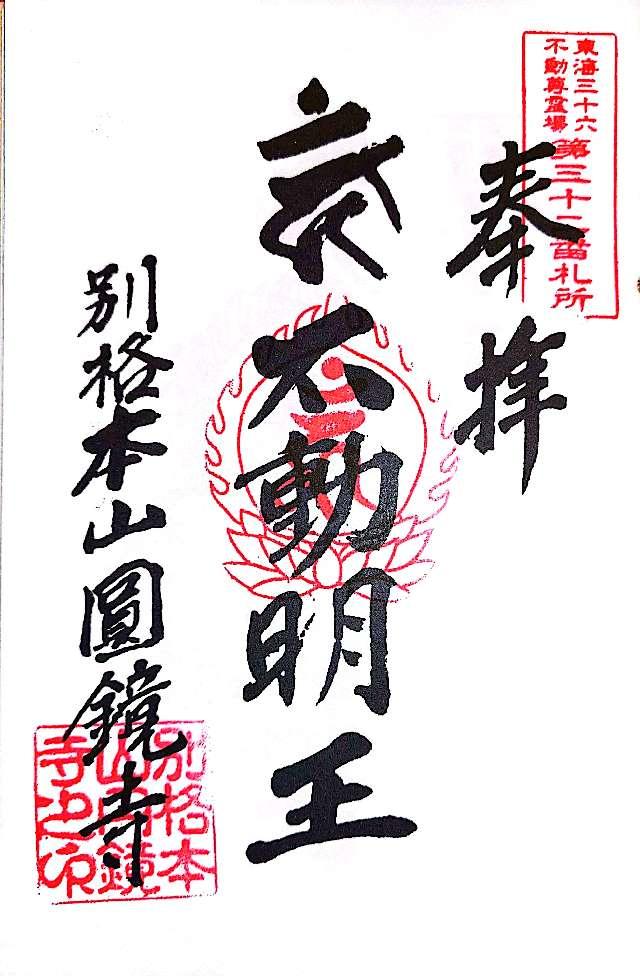 東海三十六
不動尊霊場
第三十二番札所
奉拝
不動明王
別格本山圓鏡寺
別格本
山圓鏡
寺之印